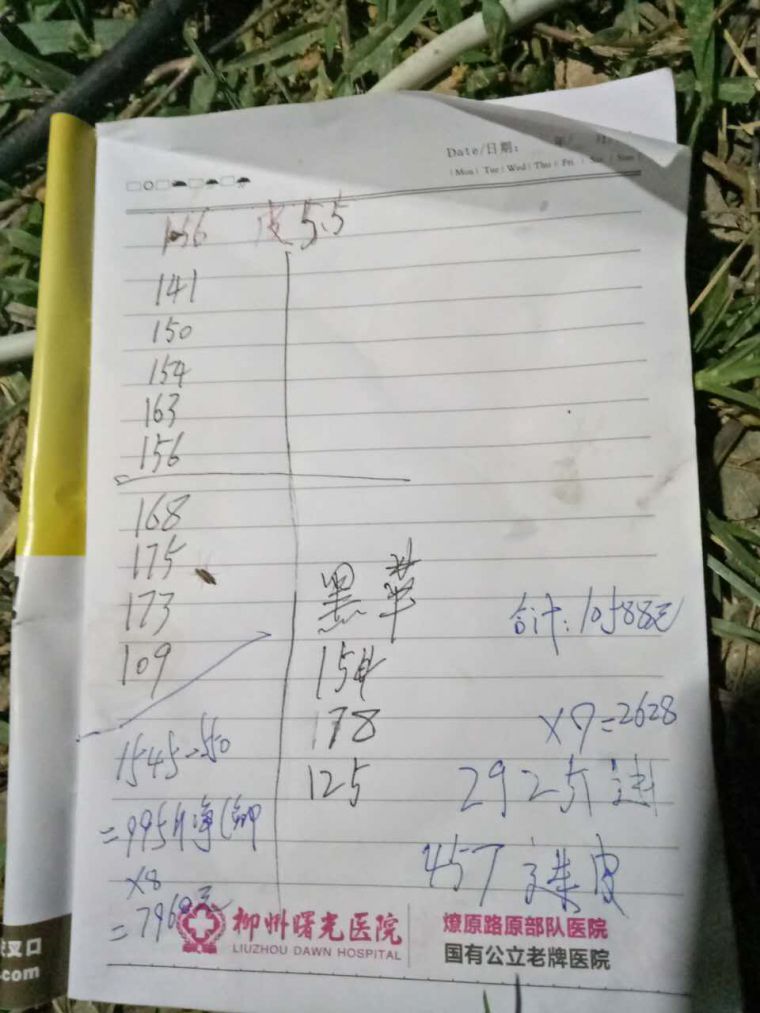 Date/日期: 年/ 月/
(Mon) Tue/ Wed/ Thu/ Fri / Sat / Sun)
皮 5.5
141
150
154
163
156
168
175
173
109
黑苹
154
178
125
合计:10588元
×9=2628
292斤净
457 连皮
1545-550
=995斤净
×8
=7960元
柳州曙光医院
LIUZHOU DAWN HOSPITAL
燎原路原部队医院
国有公立老牌医院
叉口
.com